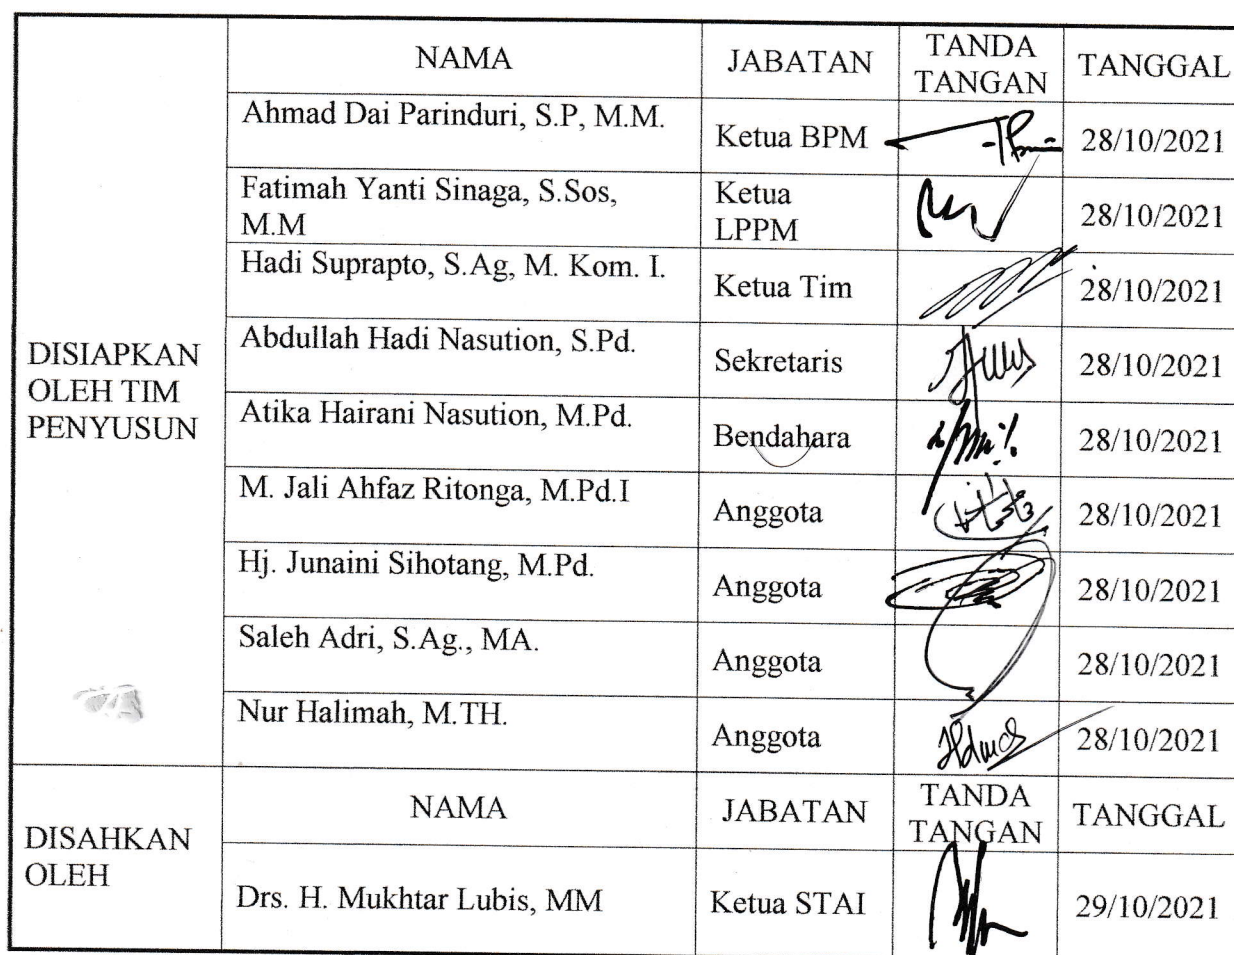 NAMA JABATAN TANDA TANGAN TANGGAL
DISIAPKAN
OLEH TIM
PENYUSUN
Ahmad Dai Parinduri, S.P, M.M. Ketua BPM 28/10/2021
Fatimah Yanti Sinaga, S.Sos,
M.M
Ketua
LPPM
28/10/2021
Hadi Suprapto, S.Ag, M. Kom. I. Ketua Tim 28/10/2021
Abdullah Hadi Nasution, S.Pd. Sekretaris 28/10/2021
Atika Hairani Nasution, M.Pd. Bendahara 28/10/2021
M. Jali Ahfaz Ritonga, M.Pd.I Anggota 28/10/2021
Hj. Junaini Sihotang, M.Pd. Anggota 28/10/2021
Saleh Adri, S.Ag., MA. Anggota 28/10/2021
Nur Halimah, M.TH. Anggota 28/10/2021
DISAHKAN
OLEH
NAMA JABATAN TANDA TANGAN TANGGAL
Drs. H. Mukhtar Lubis, MM Ketua STAI 29/10/2021